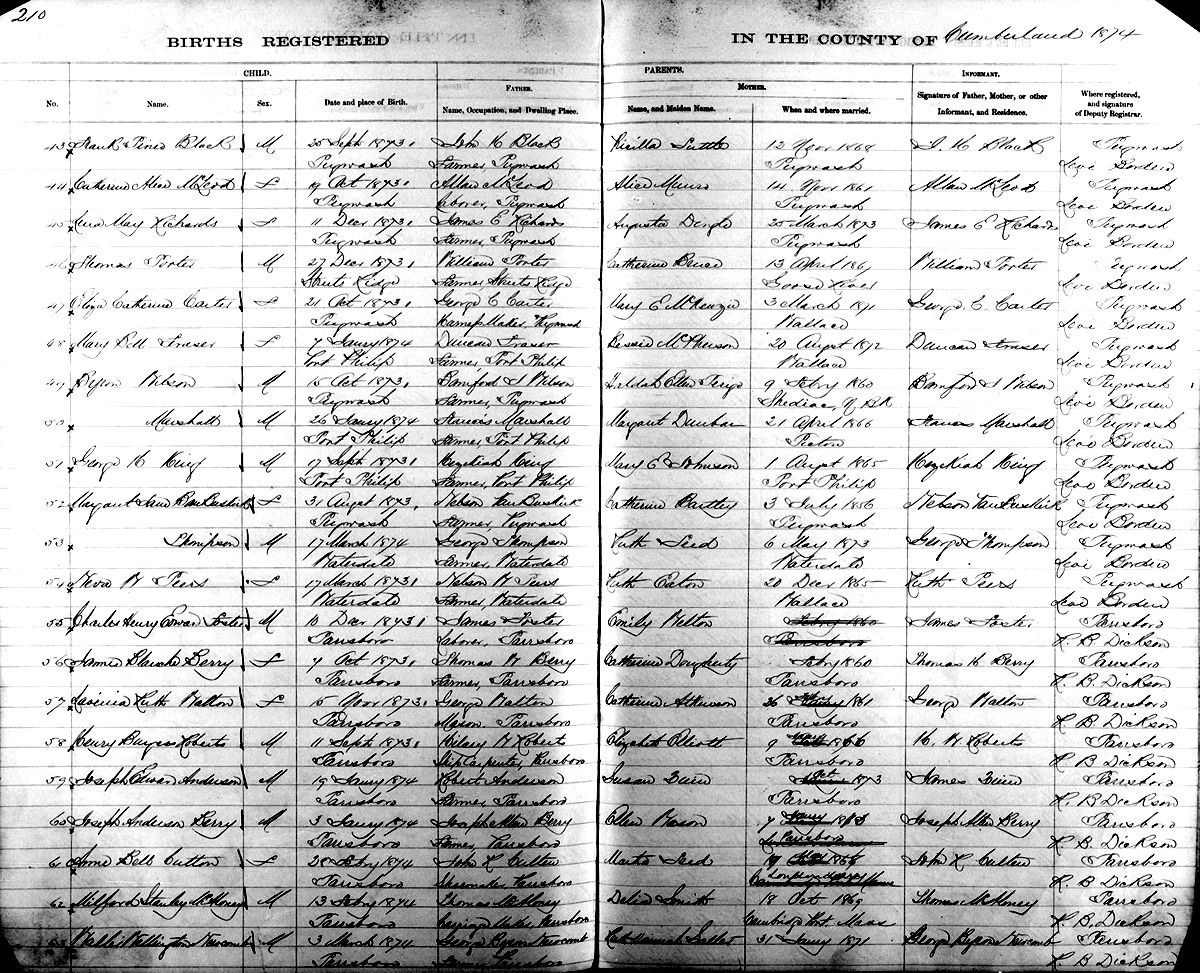 210
BIRTHS REGISTERED IN THE COUNTY OF Cumberland 1874
CHILD. PARENTS. INFORMANT.
FATHER. MOTHER.
No. Name. Sex. Date and place of Birth. Name, Occupation, and Dwelling Place. Name, and Maiden Name. When and where married. Signature of Father, Mother, or other Informant, and Residence. Where registered, and signature of Deputy Registrar.
43 Black M 25 Sept 1873. John H Black 12 Nov 1868 J. H Black Pugwash
Pugwash Farmer, Pugwash Pugwash Levi Borden
44 Catherine Alice McLeod F 19 Oct 1873. Allan McLeod Alice Munro 14 Nov 1861 Allan McLeod Pugwash
Pugwash Laborer, Pugwash Pugwash Levi Borden
45 Mary Richards F 11 Dec 1873. James E Richards Augusta 25 March 1873 James E Richards Pugwash
Pugwash Farmer, Pugwash Pugwash Levi Borden
46 Thomas Porter M 27 Dec 1873. William Porter Catherine 13 April William Porter Pugwash
Ridge Farmer Ridge Goose River Levi Borden
47 Catherine Carter F 21 Oct 1873. George C Carter Mary E McKenzie 3 March 1871 George C. Carter Pugwash
Pugwash Harness Maker, Pugwash Wallace Levi Borden
48 Mary Bell Fraser F 7 Janry 1874 Duncan Fraser Bessie McPherson 20 August 1872 Duncan Fraser Pugwash
Port Philip Farmer, Port Philip Wallace Levi Borden
49 Byron Wilson M 15 Oct 1873. Bamford Wilson Huldah Ellen 9 Febry 1860 Bamford Wilson Pugwash
Pugwash Farmer, Pugwash Shediac, N. BK Levi Borden
50 Marshall M 26 Janry 1874 Francis Marshall Margaret Dunbar 21 April 1866 Francis Marshall Pugwash
Port Philip Farmer, Port Philip Pictou Levi Borden
51 George H King M 17 Sept 1873. Hezekiah King Mary E Johnson 1 August 1865 Hezekiah King Pugwash
Port Philip Farmer, Port Philip Port Philip Levi Borden
52 Margaret Jane VanBuskirk F 31 August 1873, Nelson VanBuskirk Catherine 3 July 1856 Nelson VanBuskirk Pugwash
Pugwash Farmer, Pugwash Pugwash Levi Borden
53 Thompson M 17 March 1874 George Thompson Ruth 6 May 1873 George Thompson Pugwash
Waterdate Farmer, Waterdate Waterdate Levi Borden
54 W Peers F 17 March 1873. Nelson W Peers Ruth Eaton 20 Dec 1865 Ruth Peers Pugwash
Waterdate Farmer, Waterdate Wallace Levi Borden
55 Charles Henry Foster M 10 Dec 1873. James Foster Emily Welton Febry 1860 James Foster Parrsboro
Parrsboro Laborer, Parrsboro Parrsboro H. B. Dickson
56 Blanche Berry F 7 Oct 1873. Thomas W Berry Catherine Dougherty Febry 1860 Thomas W Berry Parrsboro
Parrsboro Farmer, Parrsboro Parrsboro H. B. Dickson
57 Lavinia Ruth Walton F 15 Nov 1873. George Walton Catherine Atkinson 26 1861 George Walton Parrsboro
Parrsboro Mason, Parrsboro Parrsboro H. B. Dickson
58 Henry Burgess Roberts M 11 Sept 1873. Hilary W Roberts Elizabeth 9 1866 H. W Roberts Parrsboro
Parrsboro Ship Carpenter, Parrsboro Parrsboro H. B. Dickson
59 Joseph Edwar Anderson M 19 Janry 1874 Robert Anderson Susan Oct 1873 James Parrsboro
Parrsboro Farmer, Parrsboro Parrsboro H. B. Dickson
60 Joseph Anderson Berry M 3 Janry 1874 Joseph Allan Berry Ellen 7 Joseph Allan Berry Parrsboro
Parrsboro Farmer, Parrsboro Parrsboro H. B. Dickson
61 Bell F 20 Febry 1874 John R 19 1866 John R Parrsboro
Parrsboro Shoemaker, Parrsboro H. B. Dickson
62 Milford Stanley McHoney M 13 Febry 1874 Thomas McHoney Delia Smith 18 Oct 1869 Thomas McHoney Parrsboro
Parrsboro Carriage Maker, Parrsboro Mass H. B. Dickson
63 Wellington Newcomb M 3 March 1874 George Byron Newcomb Hannah 31 Janry 1871 George Byron Newcomb Parrsboro
Parrsboro Farmer Parrsboro H. B. Dickson